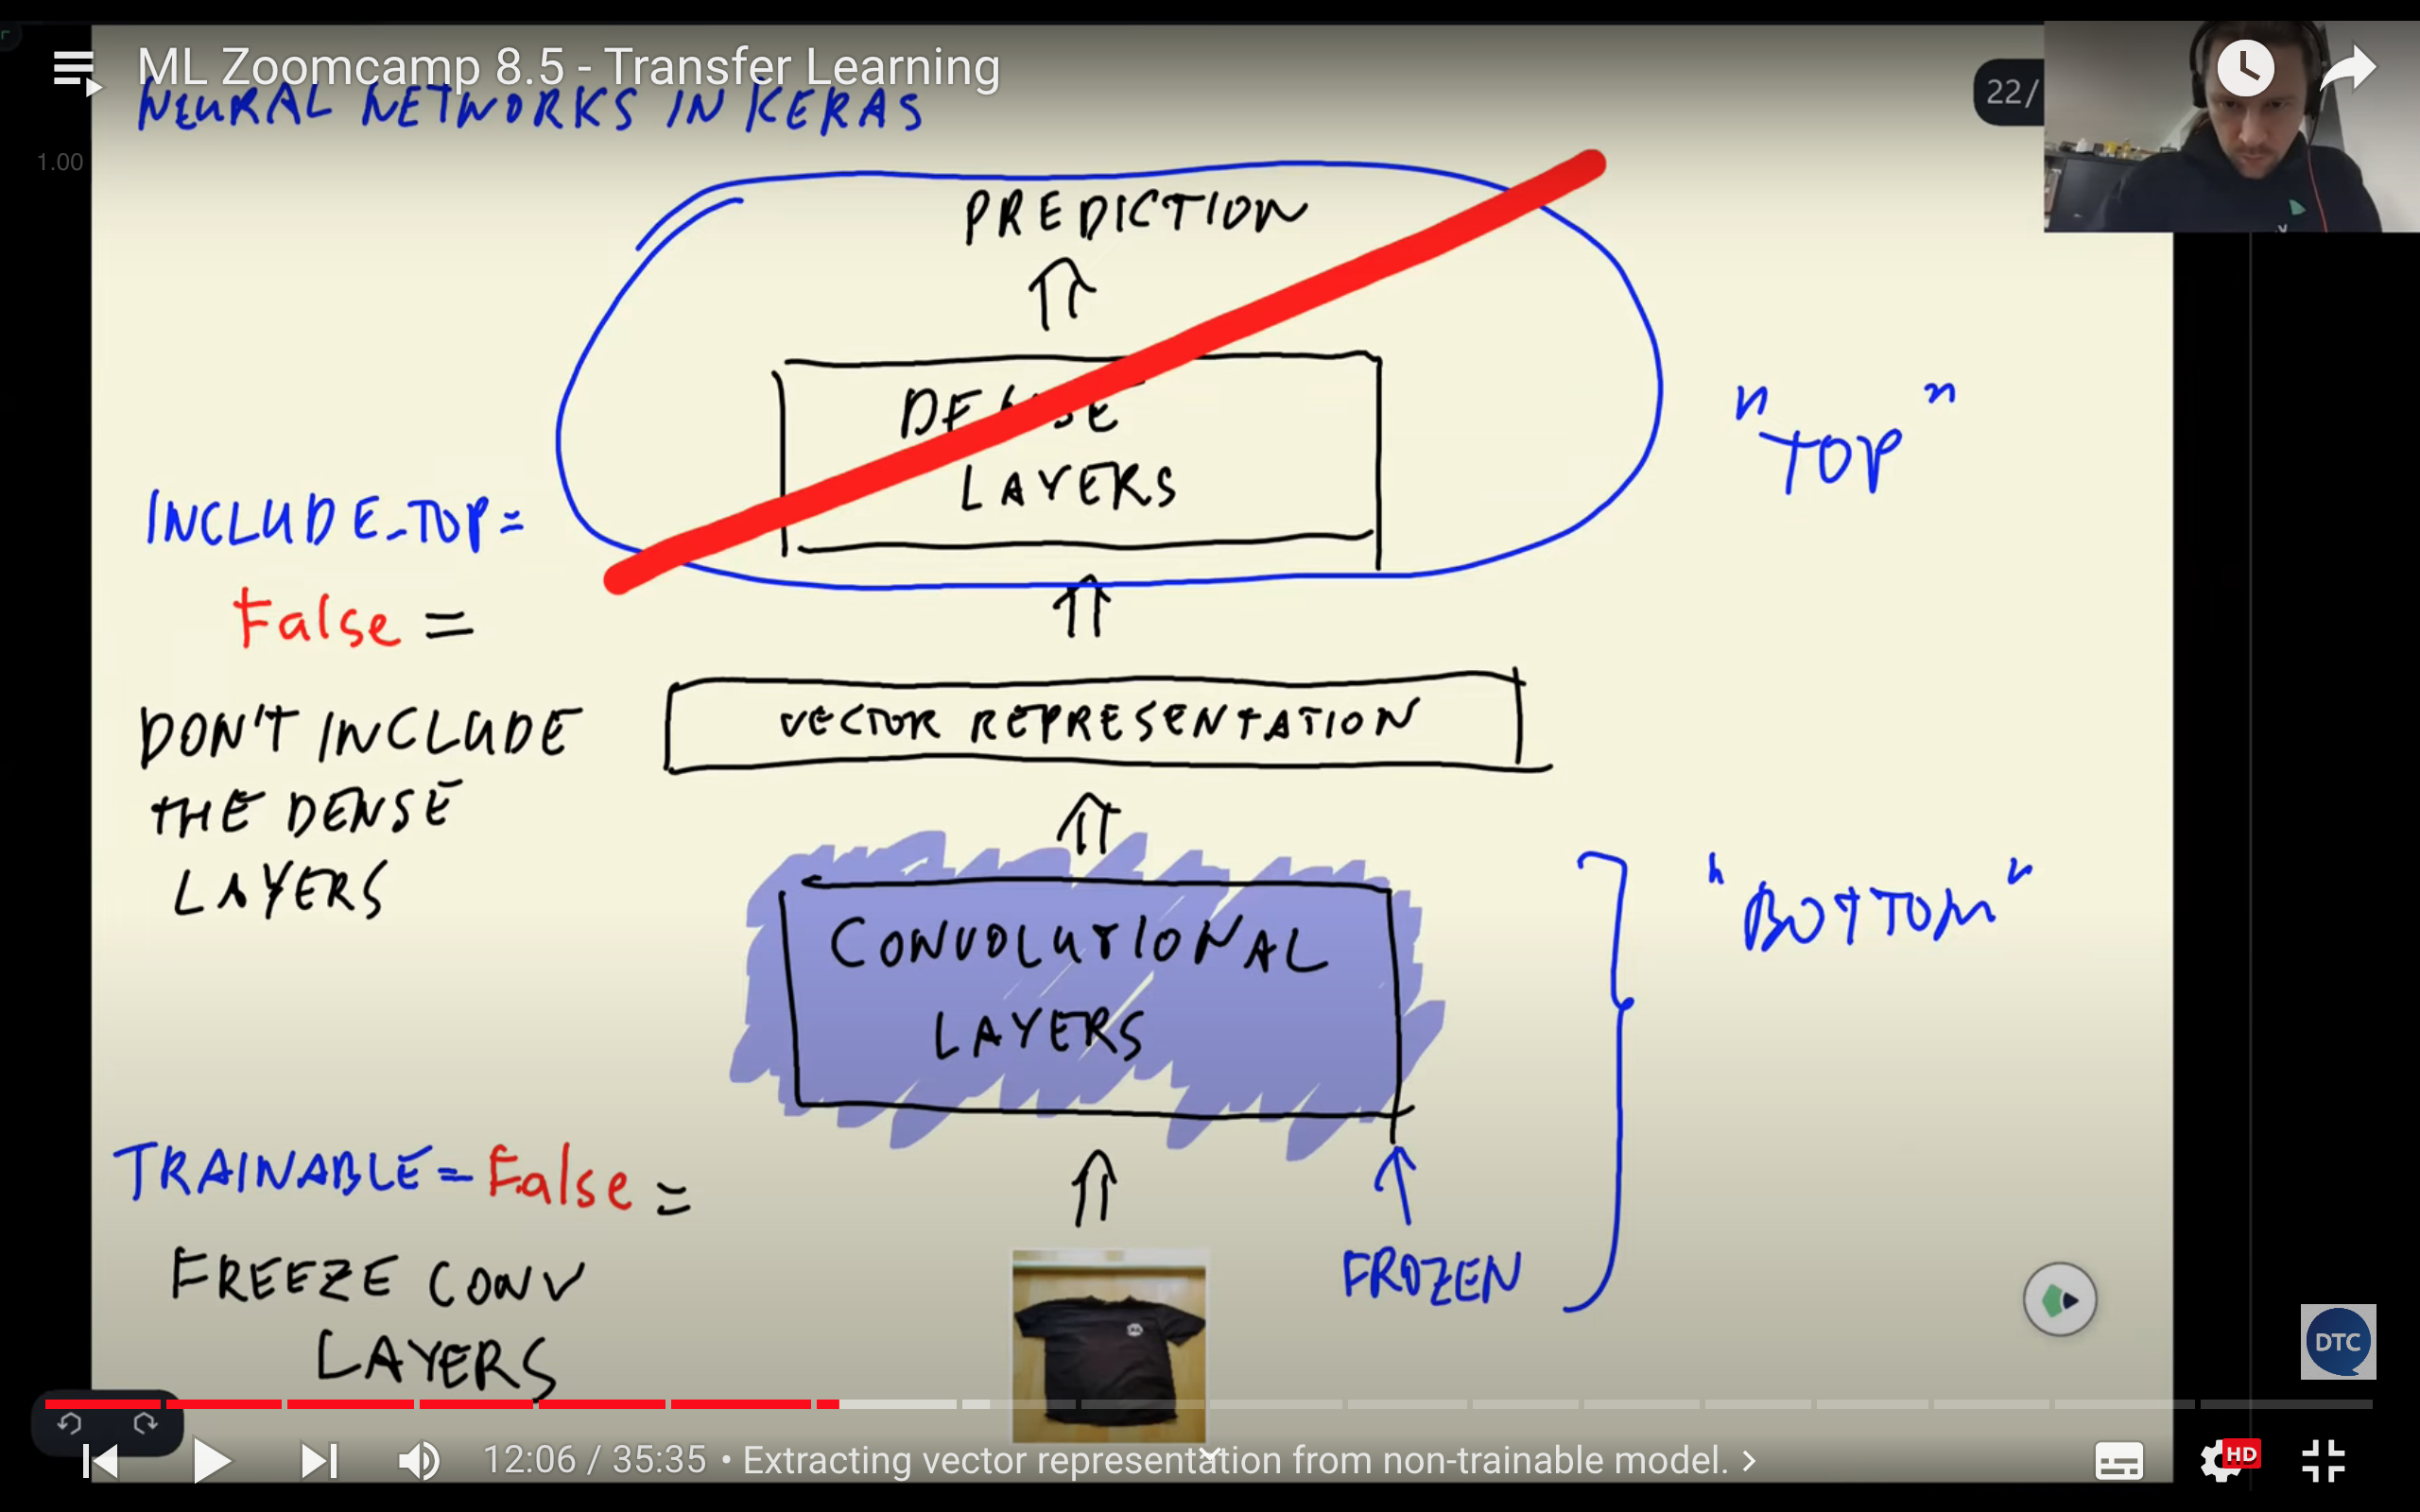 ML Zoomcamp 8.5 - Transfer Learning
NEURAL NETWORKS IN KERAS
22/
1.00
PREDICTION
DENSE
LAYERS
"TOP"
INCLUDE_TOP=
False =
DON'T INCLUDE
THE DENSE
LAYERS
VECTOR REPRESENTATION
CONVOLUTIONAL
LAYERS
"BOTTOM"
TRAINABLE = False =
FREEZE CONV
LAYERS
FROZEN
DTC
12:06 / 35:35 • Extracting vector representation from non-trainable model. >
HD